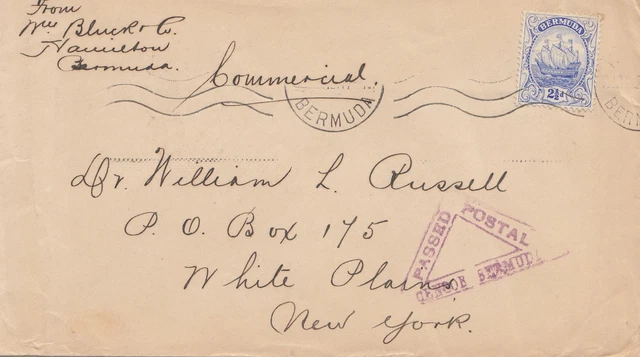 From
Wm Bluck & Co.
Hamilton
Bermuda.
Commercial.
BERMUDA
BERMUDA
2½d
BER
Dr. William L. Russell
P. O. Box 175
White Plains,
New York.
PASSED
POSTAL
CENSOR BERMUDA